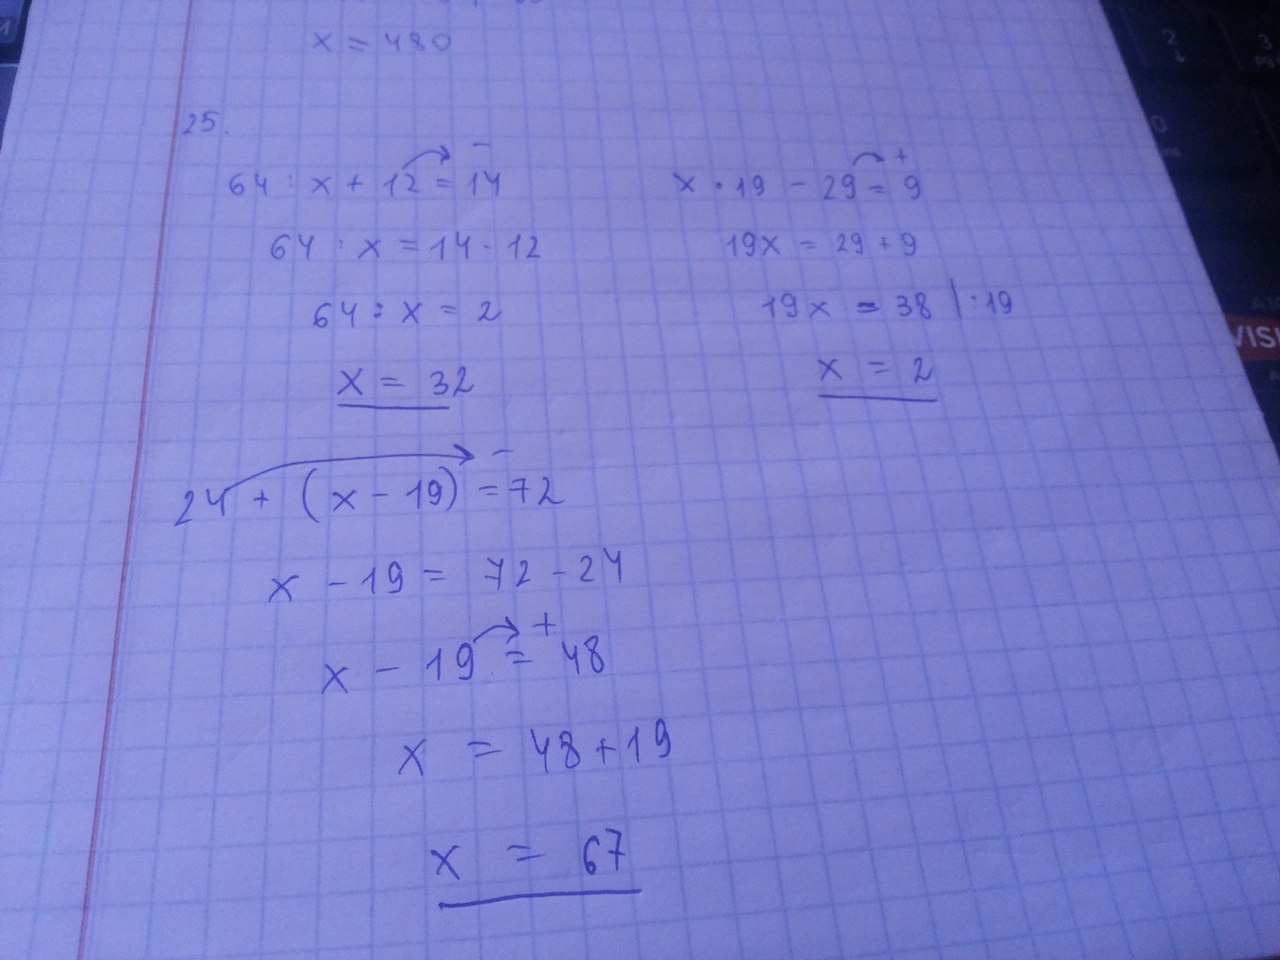 x = 480
25.
64 : x + 12 = 14 -
64 : x = 14 - 12
64 : x = 2
x = 32
x · 19 - 29 = 9 +
19x = 29 + 9
19x = 38 | : 19
x = 2
24 + (x - 19) = 72 -
x - 19 = 72 - 24
x - 19 = 48 +
x = 48 + 19
x = 67
2
3
VISI